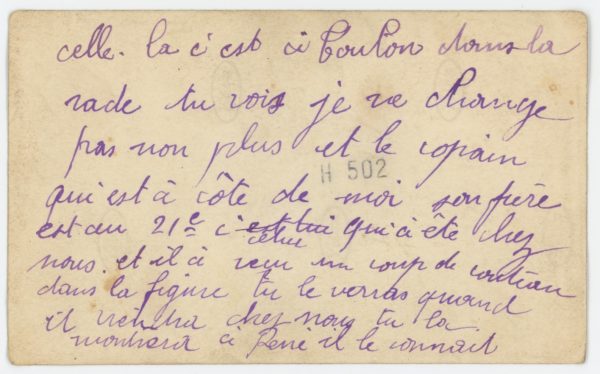 celle. la c'est à Toulon dans la
rade tu vois je ne change
pas non plus et le copain
H 502
qui est à côte de moi son frère
est au 21e c'est lui qui à été chez
celui
nous. et il à recu un coup de couteau
dans la figure tu le verras quand
il viendra chez nous tu la
montrera à René il le connait